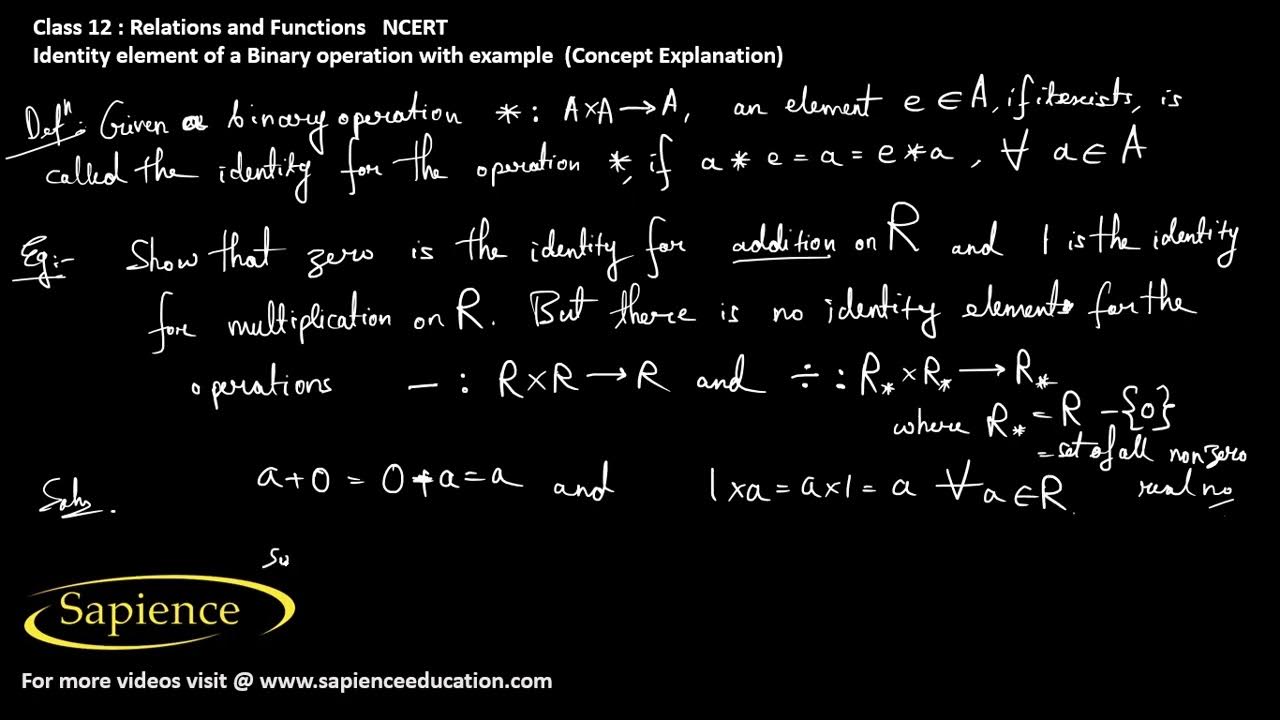 Class 12 : Relations and Functions NCERT
Identity element of a Binary operation with example (Concept Explanation)
Defⁿ:- Given a binary operation * : A×A→A, an element e ∈ A, if it exists, is
called the identity for the operation *, if a * e = a = e * a , ∀ a ∈ A
Eg:- Show that zero is the identity for addition on R and 1 is the identity
for multiplication on R. But there is no identity element for the
operations − : R×R → R and ÷ : R* × R* → R*
where R* = R − {0}
= set of all non zero
real no
Soln. a + 0 = 0 + a = a and 1 × a = a × 1 = a ∀ a ∈ R
Su
Sapience
For more videos visit @ www.sapienceeducation.com